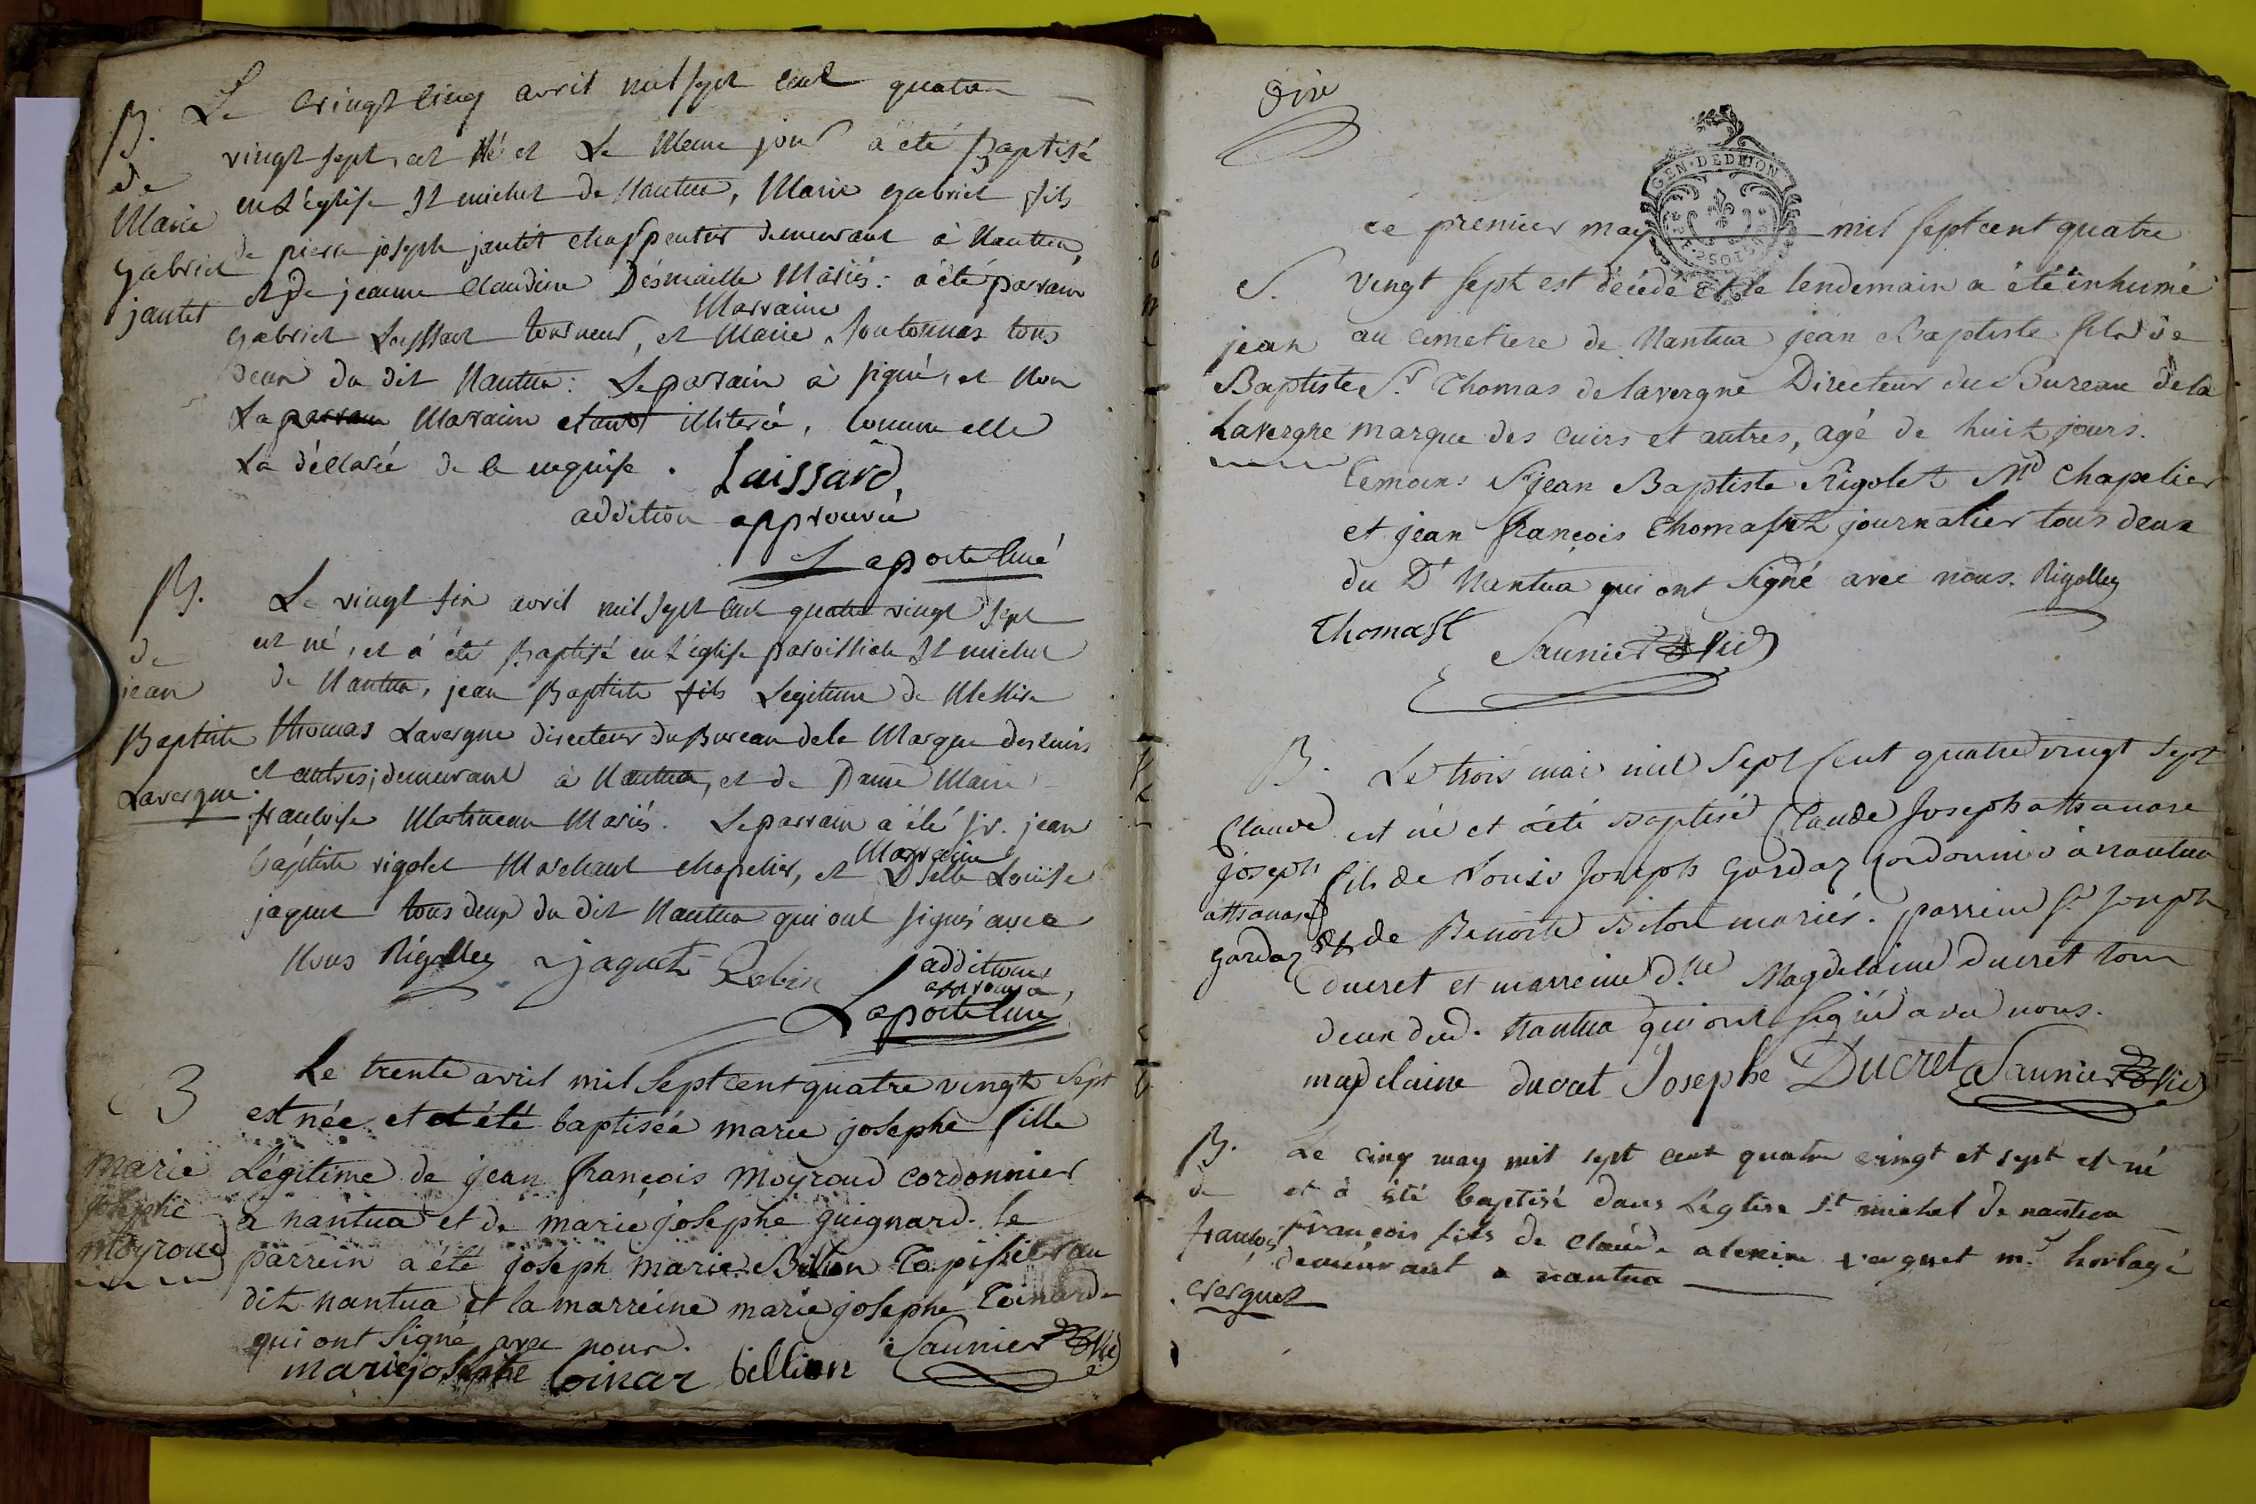 B. Le vingt cinq avril mil sept cent quatre
vingt sept, est né et le meme jour a été Baptisé
de
en l'église St michel de Nantua, Marie gabriel fils
Marie
de pierre joseph jantet charpentier demeurant à Nantua,
gabriel
et de jeanne Claudine Désmaille Mariés: a été parrain
jantet
Marraine
gabriel Laissard tourneur, et Marie Soutonnas tous
deux du dit Nantua: Le parrain à signé, et Non
La parrain Marraine etant illiterée, comme elle
La déclarée de ce requise. Laissard
addition approuvée
Laporte Curé
B. Le vingt six avril mil sept cent quatre vingt sept
est né, et à été Baptisé en l'église paroissiale St michel
de
de Nantua, jean Baptiste fils Legitime de Messire
jean
Baptiste Thomas Lavergne directeur du Bureau de la Marque des cuirs
et autres; demeurant à Nantua, et de Dame Marie
Lavergne.
françoise Martineau Mariés. Le parrain a été sr. jean
Marraine
baptiste rigolet Marchant chapelier, et Dselle Louise
jaquet tous deux du dit Nantua qui ont signés avec
Nous Rigolley Jaquet Robin
additions
approuvées,
Laporte Curé
B Le trente avril mil Sept cent quatre vingt Sept
est née et a été baptisée marie josephe fille
marie Légitime de jean françois Moyroud cordonnier
josephe a nantua et de marie josephe guignard. le
moyroud parrein a été joseph marie Billion Tapissier au
dit nantua et la marreine marie josephe Toinard
qui ont Signé avec nous. Saunier Vic
marie josephe toinar billion
Dixe
GEN. DE DIJON
ce premier may mil sept cent quatre
S. vingt sept est décédé et le lendemain a été inhumé
jean au cimetiere de Nantua jean Baptiste fils de
Baptiste Sr. Thomas de lavergne Directeur du Bureau de la
Lavergne marque des cuirs et autres, agé de huit jours.
temoins Sr jean Baptiste Rigolet Md Chapelier
et jean françois Thomasset journalier tous deux
du Dt Nantua qui ont Signé avec nous. Rigolley
Thomaset Saunier Vic
B. Le trois mai mil Sept Cent quatre vingt Sept
Claude est né et a été Baptisé Claude Joseph atthanase
joseph fils de Louis Joseph Gardaz Cordonnier à nantua
atthanase
et de Benoite Biton mariés. parrein Sr Joseph
gardaz
Ducret et marreine dlle Magdelaine Ducret tous
deux dud. Nantua qui ont signé avec nous.
magdelaine ducret Josephe Ducret Saunier Vic
B. Le cinq may mil sept cent quatre vingt et sept est né
de et à été baptisé dans L'église St michel de nantua
françois françois fils de Claude verguet md horlogé
demeurant a nantua
verguet